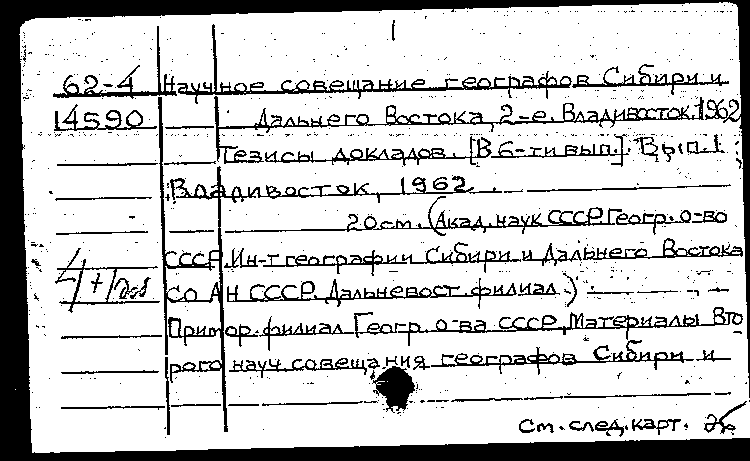 62-4 Научное совещание географов Сибири и
14590 Дальнего Востока, 2-е. Владивосток. 1962
Тезисы докладов. [В 6-ти вып.]. Вып. 1
Владивосток, 1962.
20 см. (Акад. наук СССР. Геогр. о-во
СССР. Ин-т географии Сибири и Дальнего Востока
СО АН СССР. Дальневост. филиал.)
Примор. филиал Геогр. о-ва СССР. Материалы Вто
рого науч. совещания географов Сибири и
См. след. карт.